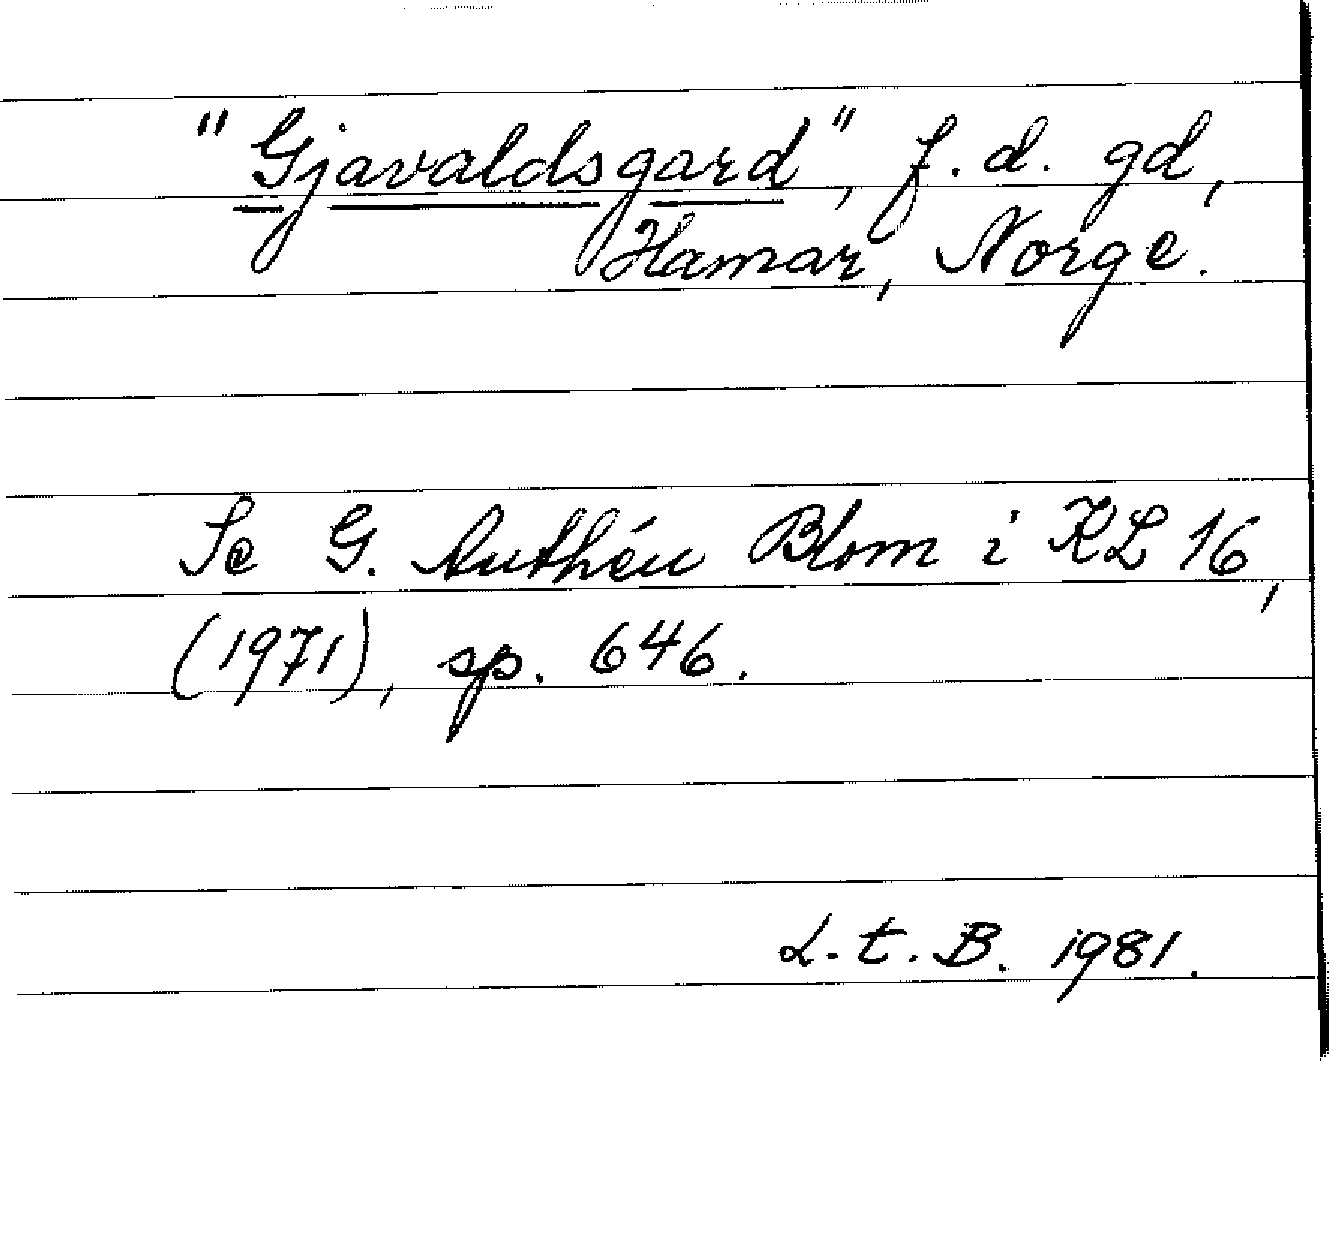 "Gjavaldsgard", f. d. gd,
Hamar, Norge.
Se G. Authén Blom i KL 16,
(1971), sp. 646.
L. t. B. 1981.